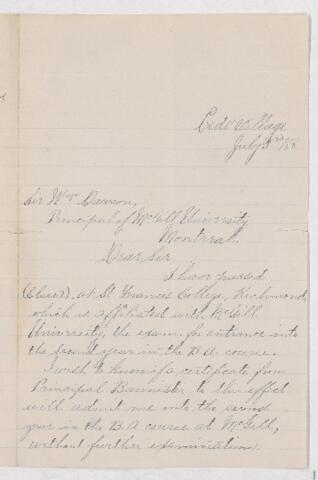 Village
July 3rd 188
Sir Wm Dawson,
Principal of McGill University
Montreal.
Dear Sir
I have passed
at St. Francis College, Richmond,
which is affiliated with McGill
University, the exam. for entrance into
the second year in the B.A. course.
I wish to know if a certificate from
Principal Bannister to this effect
will admit me into the second
year in the B.A course at McGill,
without further examination.